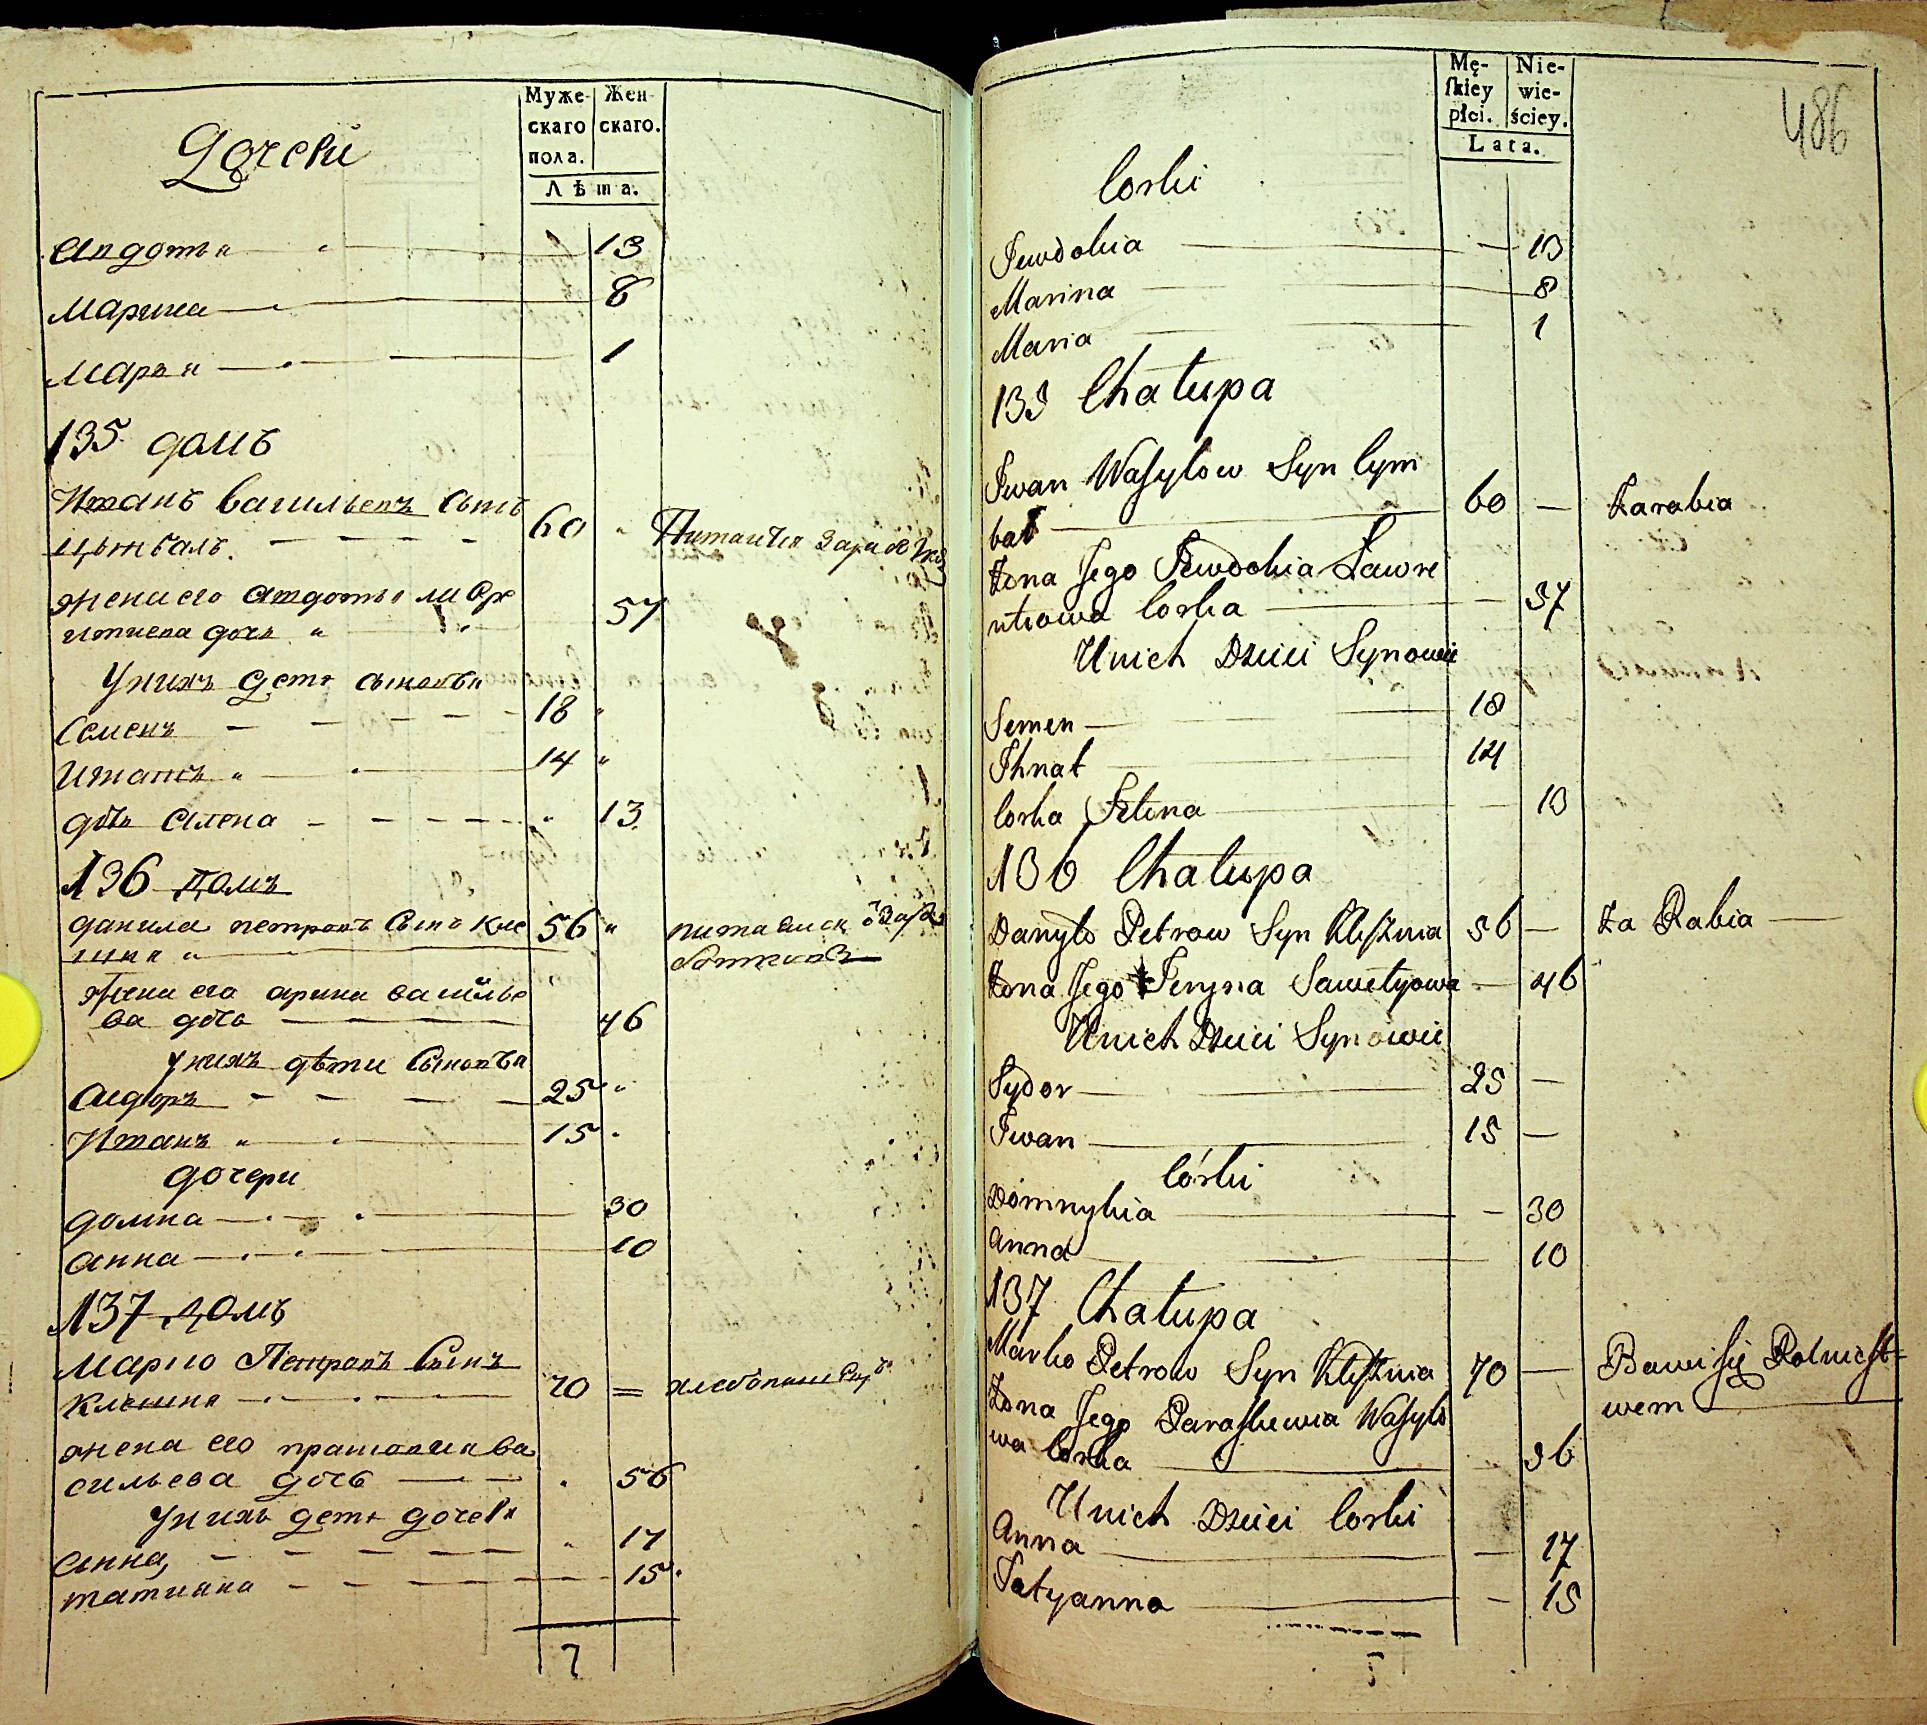 Муже- Жен-
скаго скаго.
пола.
Лѣта.
Дочеки
Авдотья 13
Марина 8
Марья 1
135 домъ
Иванъ Васильевъ Сынъ
Цымбалъ 60
жена его Авдотья Лавре
нтиева дочь 57
У нихъ дети сыновья
Семенъ 18
Игнатъ 14
дочь Алена 13
136 Домъ
Данила Петровъ Сынъ Кле
шня 56 питаится
жена его Арина Василье
ва дочь 46
У нихъ дѣти Сыновья
Сидоръ 25
Иванъ 15
Дочери
Домна 30
Анна 10
137 Домъ
Марко Петровъ Сынъ
Клешня 70 =
жена его Прасковия Ва
сильева дочь 56
У нихъ дети дочеки
Анна, 17
татияна 15
7
Mę- Nie-
skiey wie-
płci. ściey.
Lata.
486
Corki
Jewdokia 13
Marina 8
Maria 1
135 Chałupa
Iwan Wasylow Syn Cym
bał 60 — Zarabia
Żona Jego Jewdokia Ławre
ntiowa Corka 57
U nich Dzieci Synowie
Semen 18
Ihnat 14
Corka Helena 13
136 Chałupa
Danyło Petrow Syn Klesznia 56 — Za Rabia
Żona Jego Jeryna Sawetyowa 46
U nich Dzieci Synowie
Sydor 25 —
Iwan 15 —
Córki
Domnykia 30
Anna 10
137 Chałupa
Marko Petrow Syn Klesznia 70 — Bawi się Rolnicst-
wem
Żona Jego Paraskewia Wasylo
wa Corka 56
U nich Dzieci Corki
Anna 17
Tatyanna 15